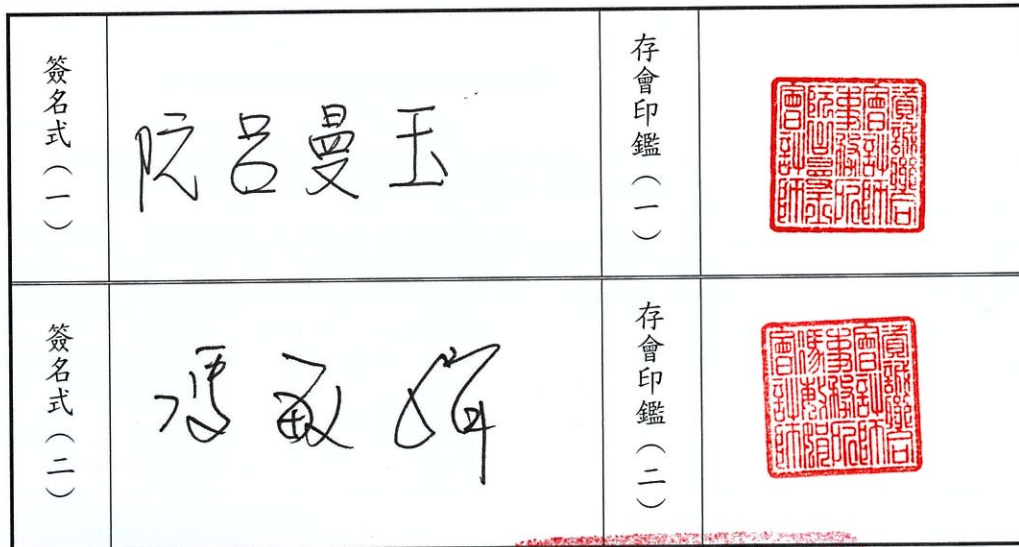 簽名式(一)
阮呂曼玉
存會印鑑(一)
資誠聯合
會計師
事務所
阮呂曼玉
會計師
簽名式(二)
馮敏娟
存會印鑑(二)
資誠聯合
會計師
事務所
馮敏娟
會計師